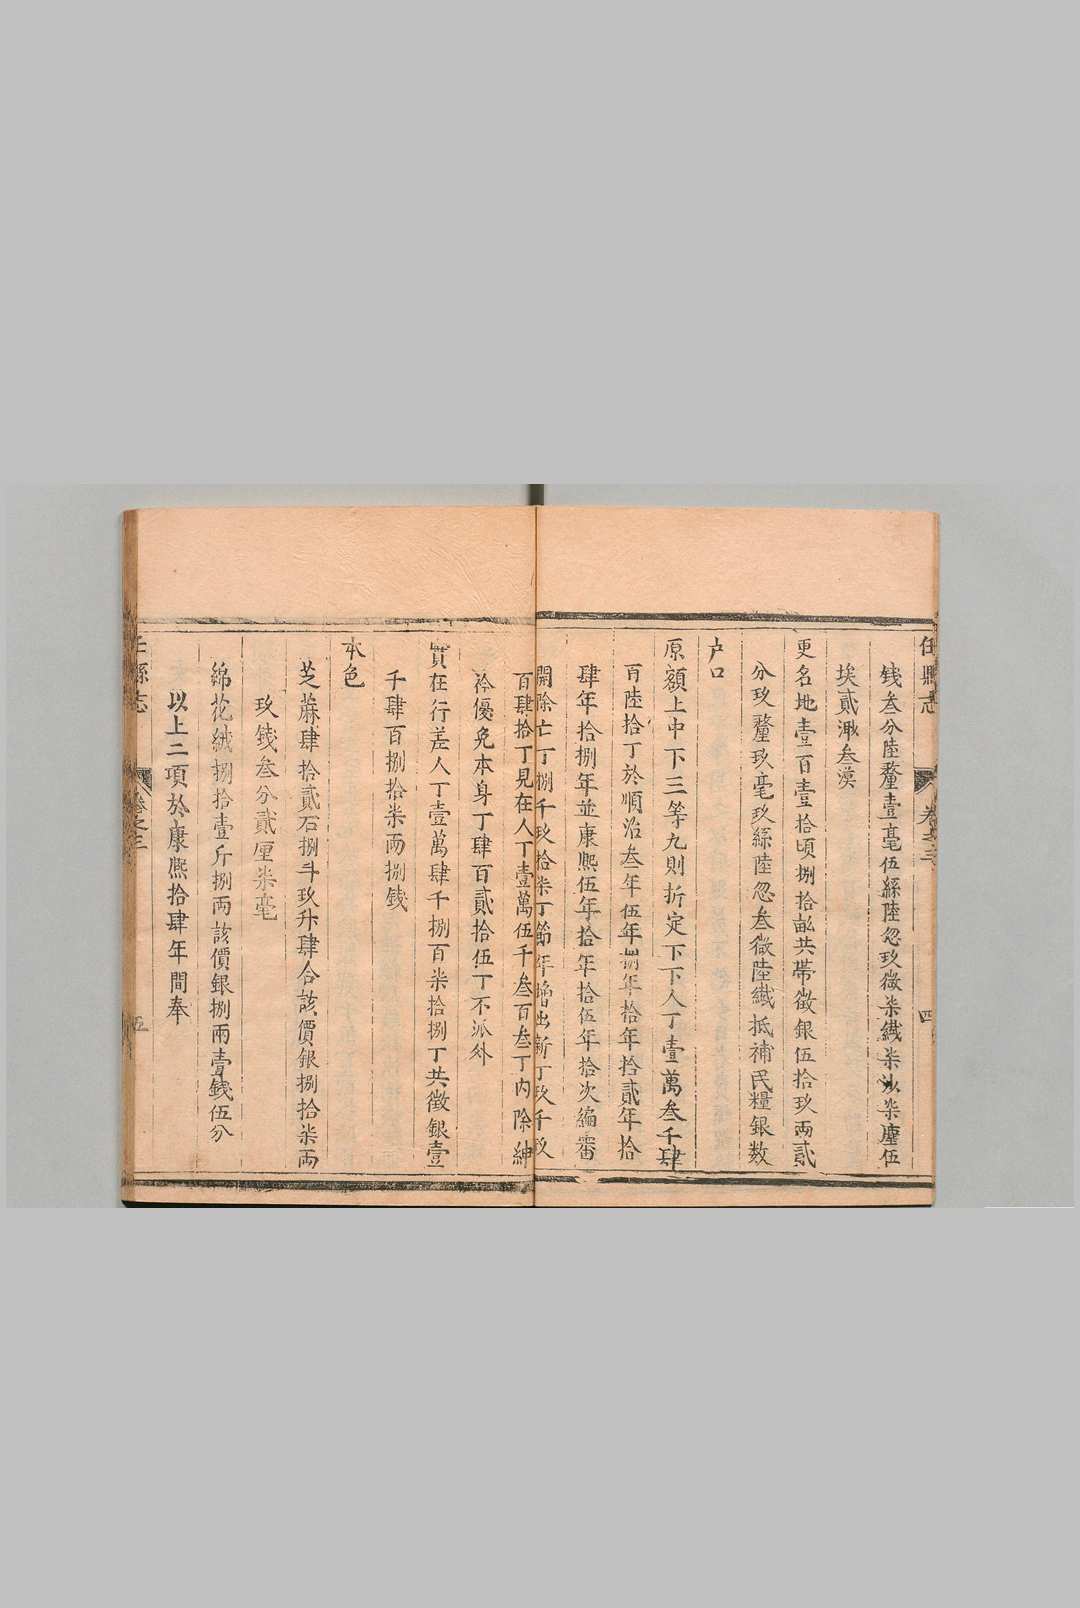 任縣志
卷之三
四
錢叁分陸釐壹毫伍絲陸忽玖微柒纖柒沙柒塵伍
埃貳渺叁漠
更名地壹百壹拾頃捌拾畝共帶徵銀伍拾玖兩貳
分玖釐玖毫玖絲陸忽叁微陸纖抵補民糧銀數
户口
原額上中下三等九則折定下下人丁壹萬叁千肆
百陸拾丁於順治叁年伍年捌年拾年拾貳年拾
肆年拾捌年並康熙伍年拾年拾伍年拾次編審
開除亡丁捌千玖拾柒丁節年增出新丁玖千玖
百肆拾丁見在人丁壹萬伍千叁百叁丁內除紳
衿優免本身丁肆百貳拾伍丁不派外
實在行差人丁壹萬肆千捌百柒拾捌丁共徵銀壹
千肆百捌拾柒兩捌錢
本色
芝蔴肆拾貳石捌斗玖升肆合該價銀捌拾柒兩
玖錢叁分貳厘柒毫
綿花絨捌拾壹斤捌兩該價銀捌兩壹錢伍分
以上二項於康熙拾肆年間奉
任縣志
卷之三
五